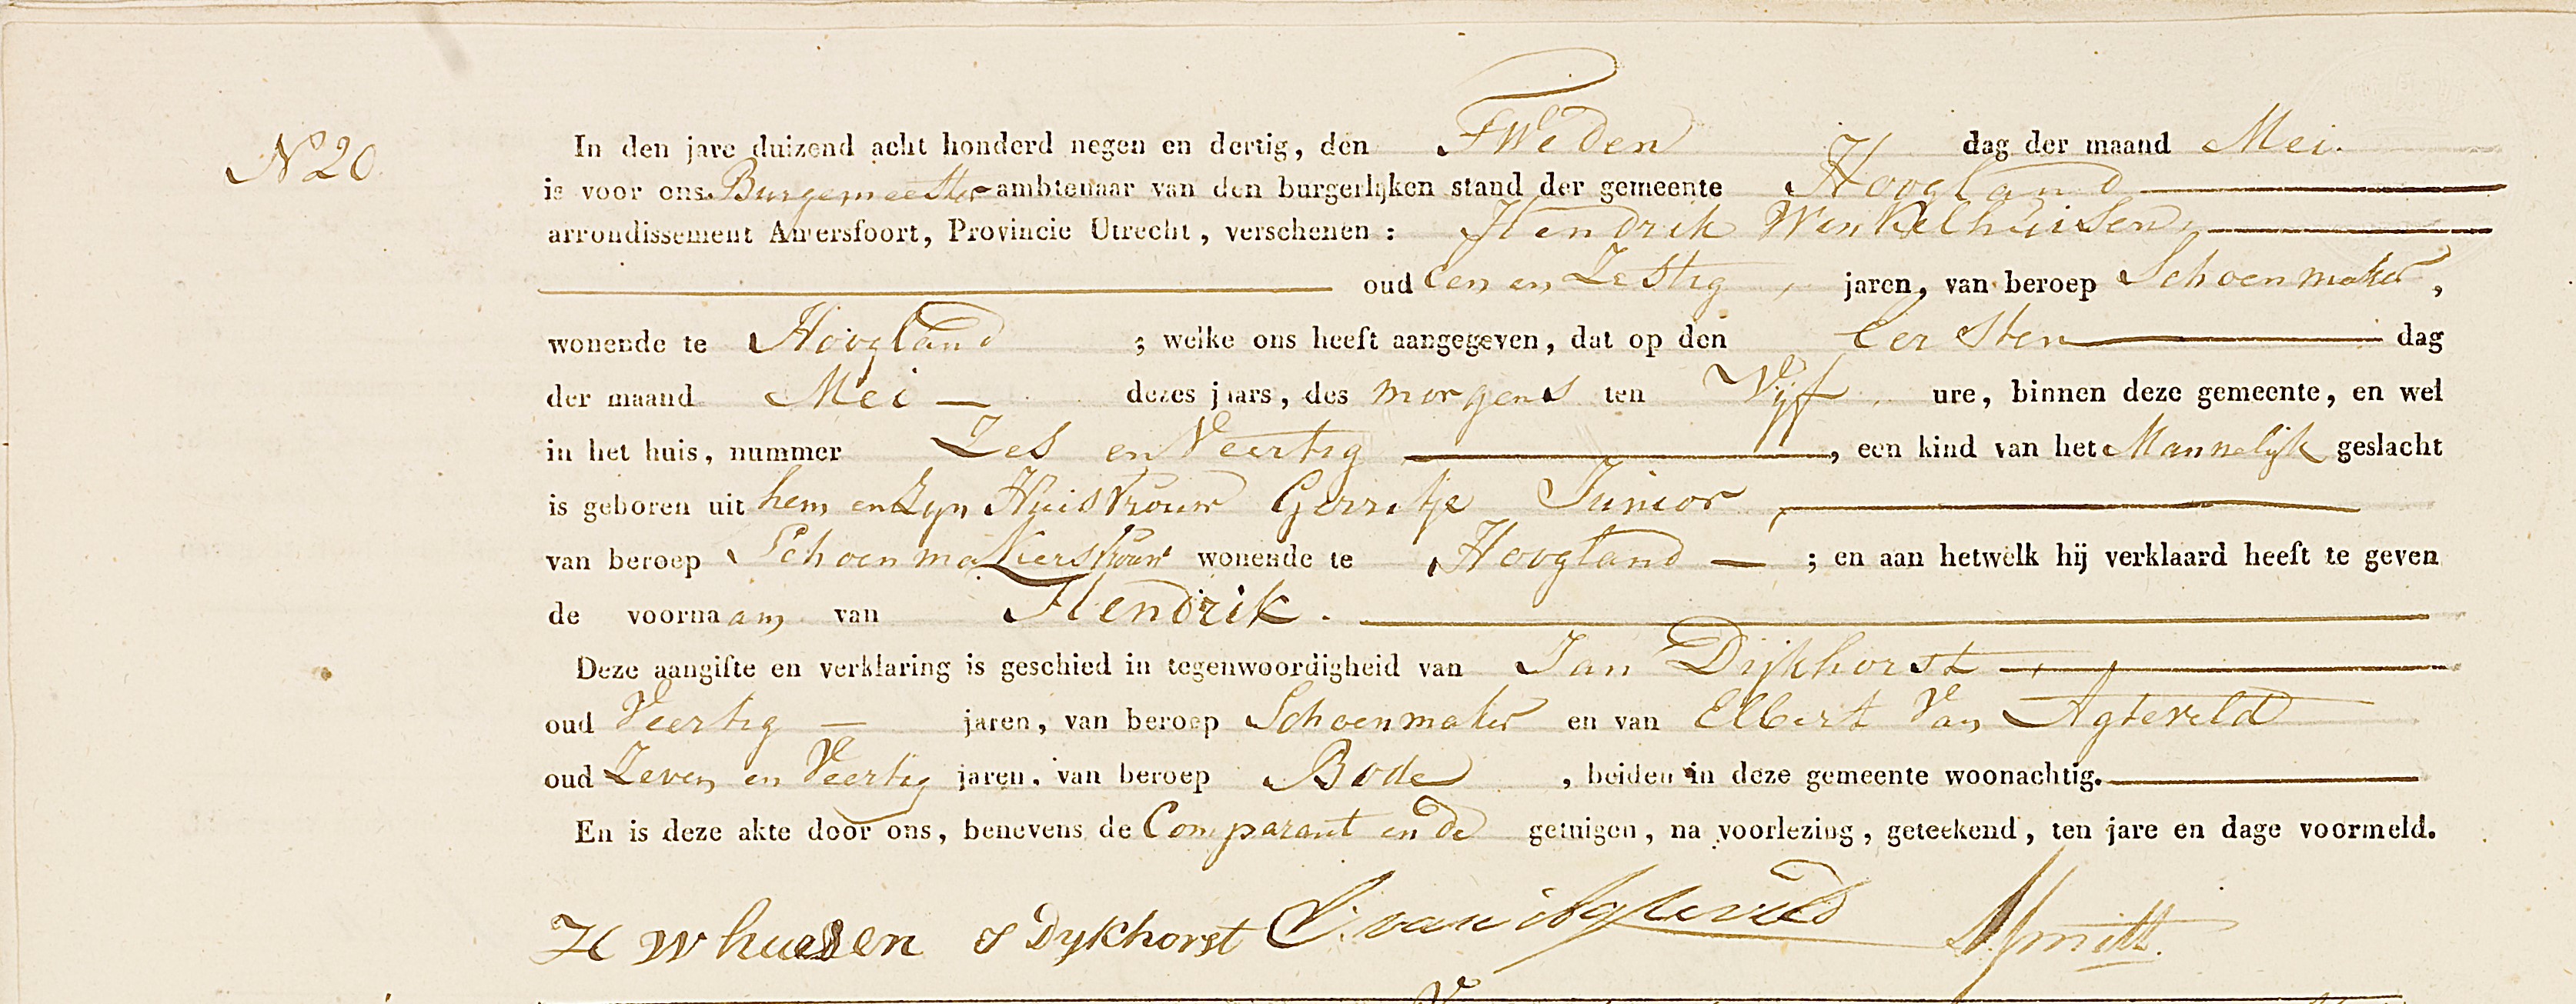 N 20.
In den jare duizend acht honderd negen en dertig, den Tweden dag der maand Mei.
is voor ons Burgemeester ambtenaar van den burgerlijken stand der gemeente Hoogland
arrondissement Amersfoort, Provincie Utrecht, verschenen: Hendrik Winkelhuisen,
oud Een en Zestig, jaren, van beroep Schoenmaker,
wonende te Hoogland ; welke ons heeft aangegeven, dat op den Eersten dag
der maand Mei dezes jaars, des morgens ten Vijf ure, binnen deze gemeente, en wel
in het huis, nummer Zes en Veertig, een kind van het Mannelijk geslacht
is geboren uit hem en Zyn Huisvrouw Gerritje Junior,
van beroep Schoenmakersvrouw wonende te Hoogland ; en aan hetwelk hij verklaard heeft te geven
de voornaam van Hendrik.
Deze aangifte en verklaring is geschied in tegenwoordigheid van Jan Dijkhorst,
oud Veertig jaren, van beroep Schoenmaker en van Elbert Van Agteveld
oud Zeven en Veertig jaren, van beroep Bode, beiden in deze gemeente woonachtig.
En is deze akte door ons, benevens de Comparant en de getuigen, na voorlezing, geteekend, ten jare en dage voormeld.
H W huesen J Dykhorst E. van Agteveld